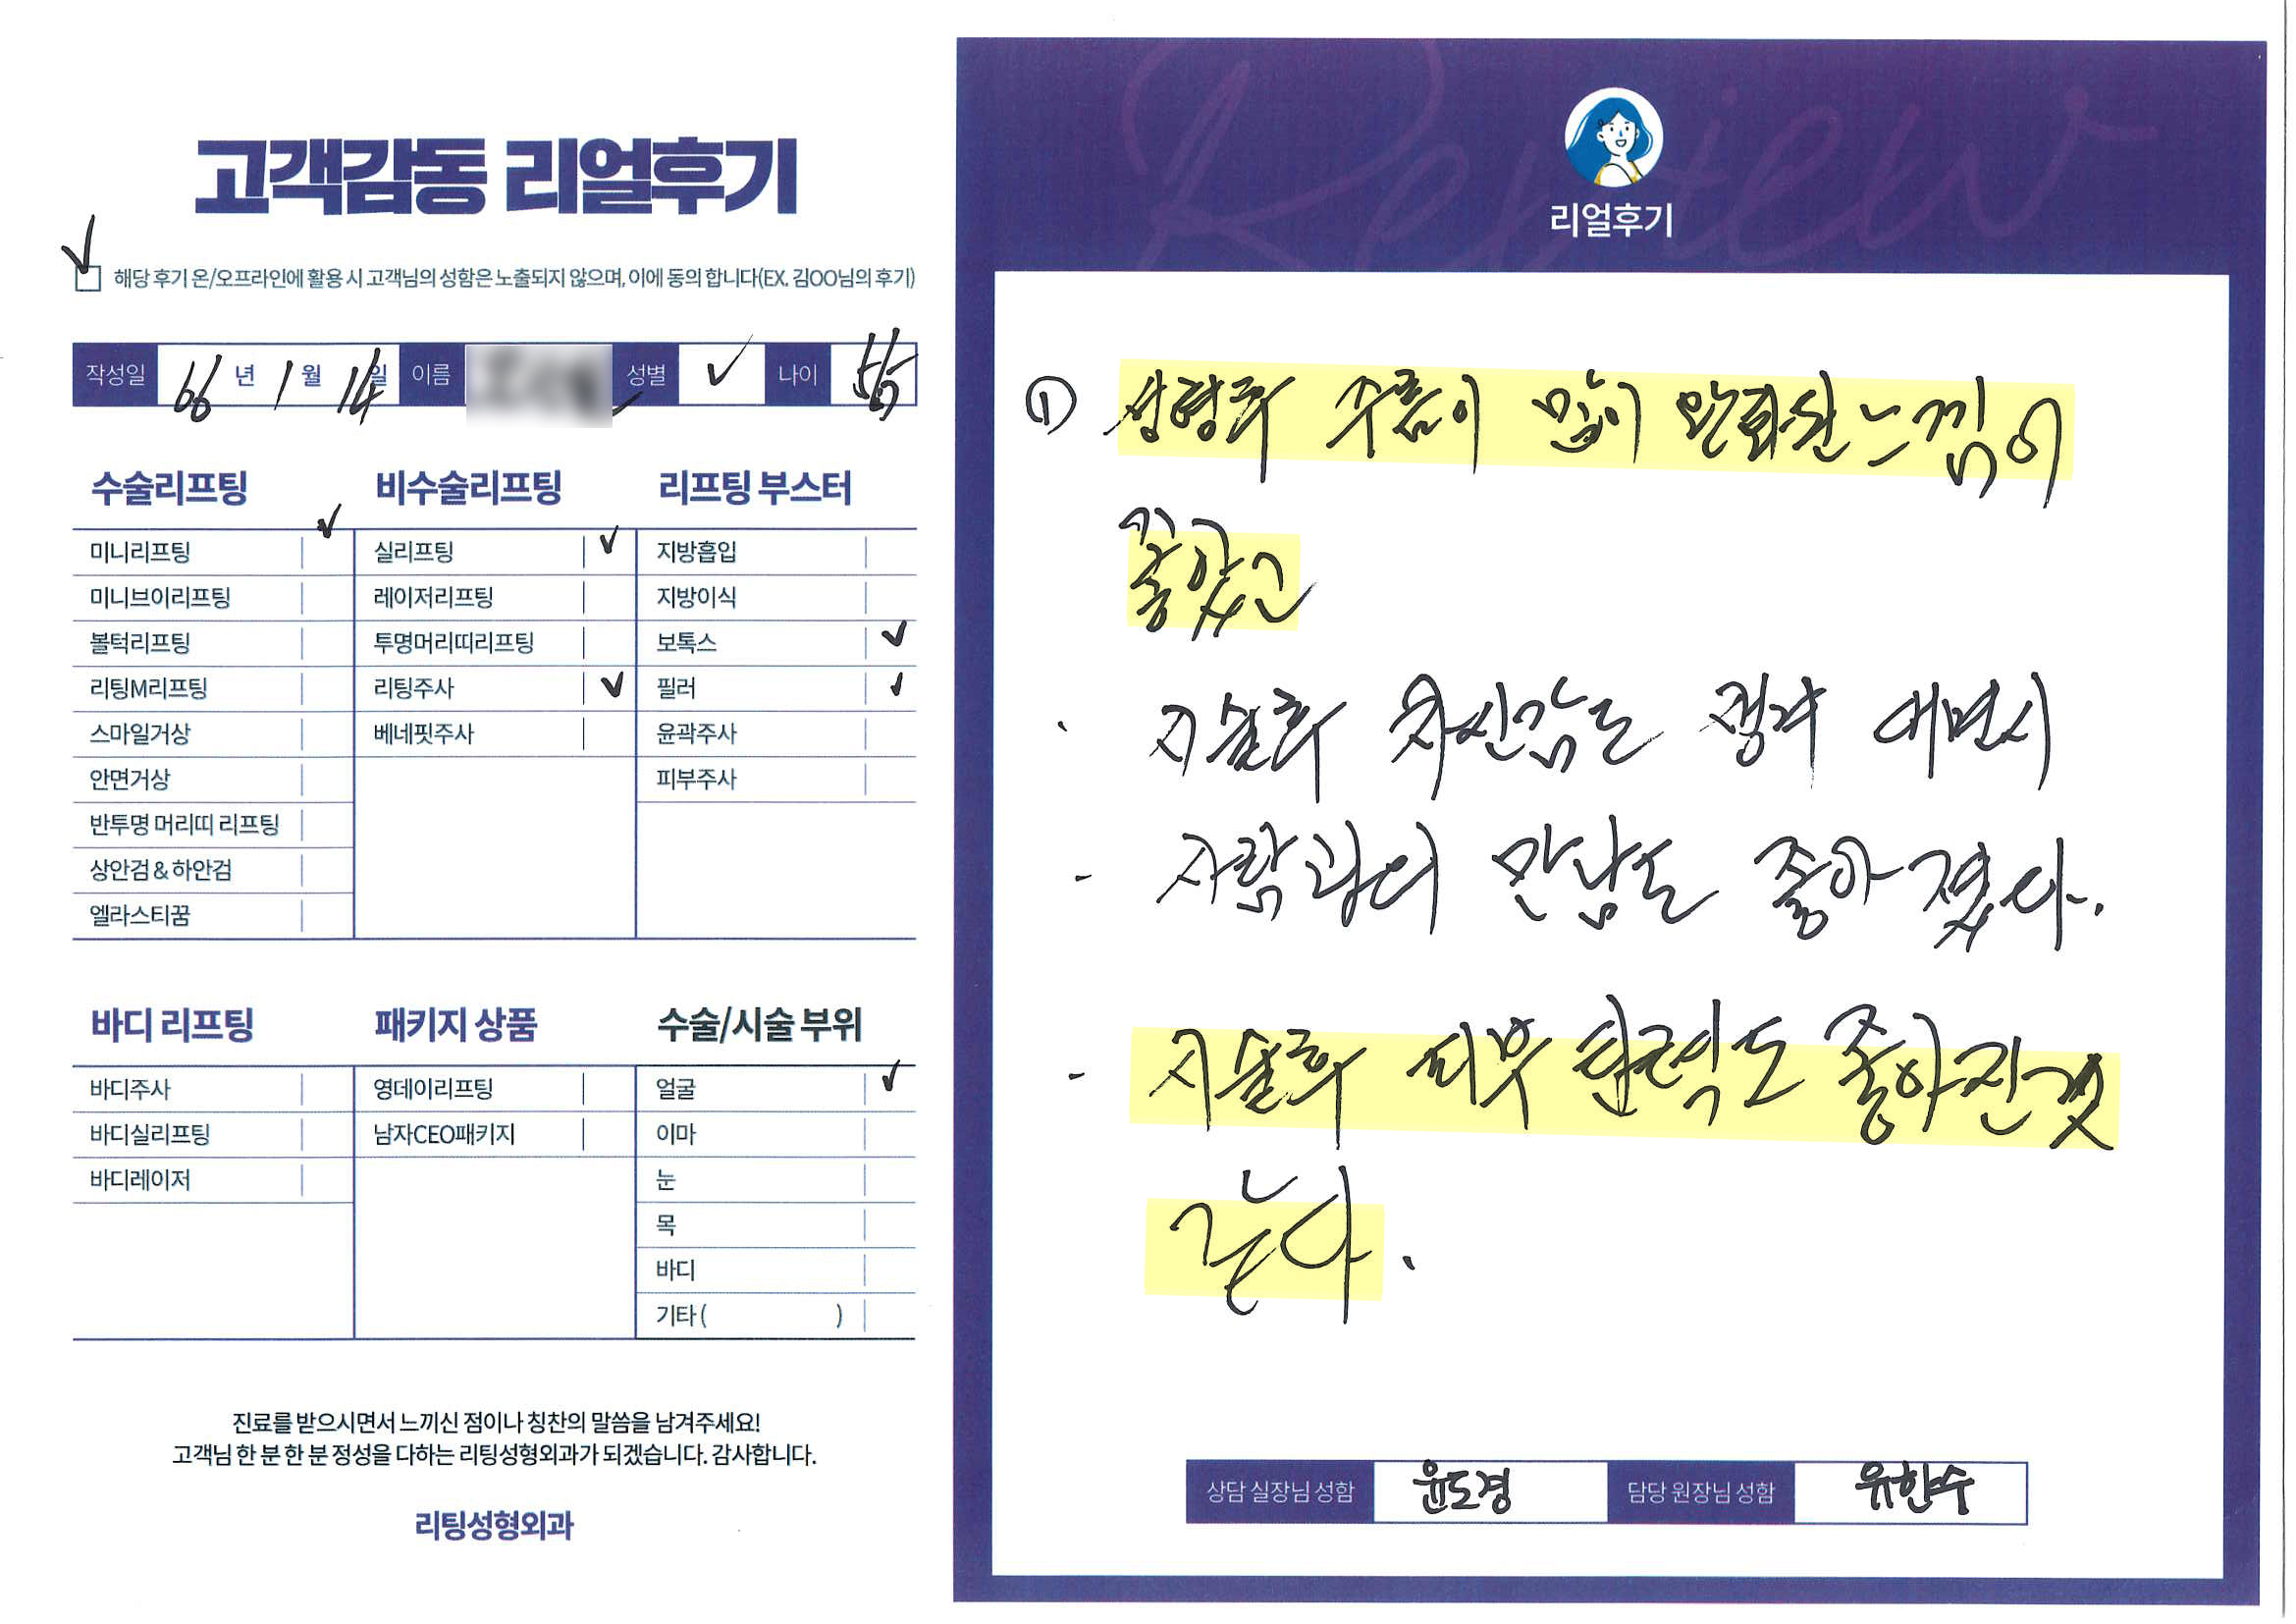 고객감동 리얼후기
해당 후기 온/오프라인에 활용 시 고객님의 성함은 노출되지 않으며, 이에 동의 합니다(EX. 김OO님의 후기)
작성일 66년 1월 14일 이름 성별 나이
수술리프팅
미니리프팅
미니브이리프팅
볼턱리프팅
리팅M리프팅
스마일거상
안면거상
반투명 머리띠 리프팅
상안검 & 하안검
엘라스티꿈
비수술리프팅
실리프팅
레이저리프팅
투명머리띠리프팅
리팅주사
베네핏주사
리프팅 부스터
지방흡입
지방이식
보톡스
필러
윤곽주사
피부주사
바디 리프팅
바디주사
바디실리프팅
바디레이저
패키지 상품
영데이리프팅
남자CEO패키지
수술/시술 부위
얼굴
이마
눈
목
바디
기타 ( )
진료를 받으시면서 느끼신 점이나 칭찬의 말씀을 남겨주세요!
고객님 한 분 한 분 정성을 다하는 리팅성형외과가 되겠습니다. 감사합니다.
리팅성형외과
Review
리얼후기
① 성형후 주름이 많이 완화된 느낌이
좋았고
· 시술후 자신감도 생겨 대면시
- 사람과의 만남도 좋아 졌다.
- 시술후 피부 탄력도 좋아진것
같다.
상담 실장님 성함 윤도경 담당 원장님 성함 유한수